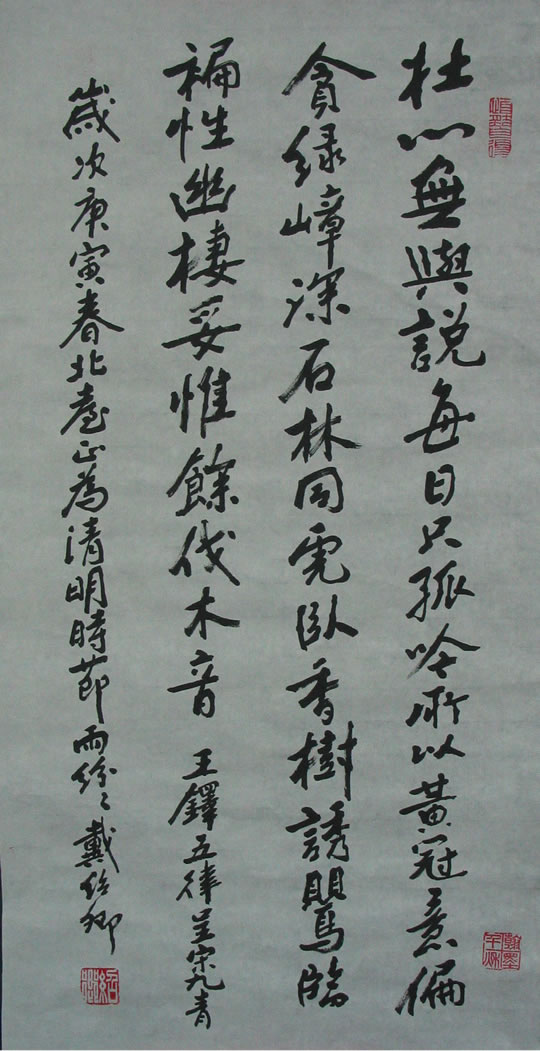 壮心無與說每日只孤吟所以黃冠意偏
貪綠嶂深石林同虎臥香樹誘鸎臨
褊性幽棲妥惟餘伐木音 王鐸五律呈宋九青
歲次庚寅春北臺正為清明時節雨紛〻戴